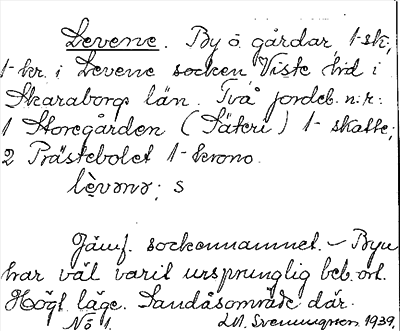 Levene. By ö. gårdar, 1-sk,
1-kr. i Levene socken, Viste hd i
Skaraborgs län. Två jordeb. n:r:
1 Storegården (Säteri) 1- skatte;
2 Prästebolet 1- krono.
lèvənə; s
Jämf. sockennamnet. – Byn
har väl varit ursprunglig beb. ort.
Högt läge. Sandåsområde där.
No 1. Svenungson 1939.